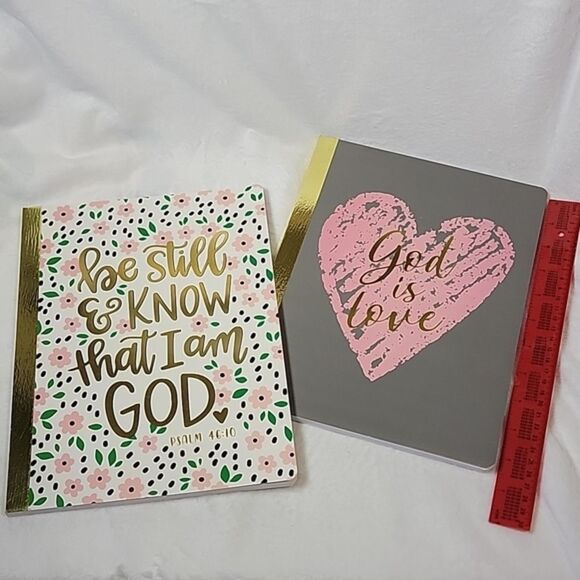 be still
& KNOW
that I am
GOD.
PSALM 46:10
God
is
love